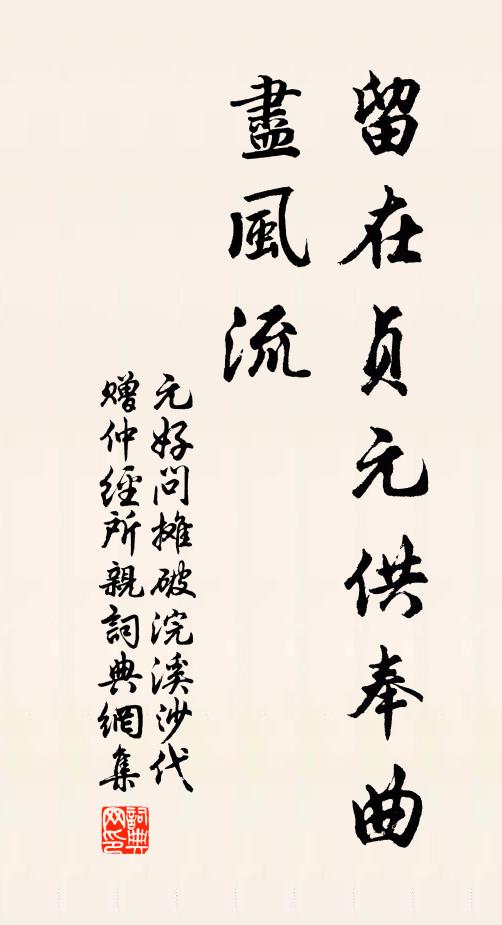 留在贞元供奉曲
盡風流
元好问摊破浣溪沙代
赠仲經所親詞典網集
詞典
网印